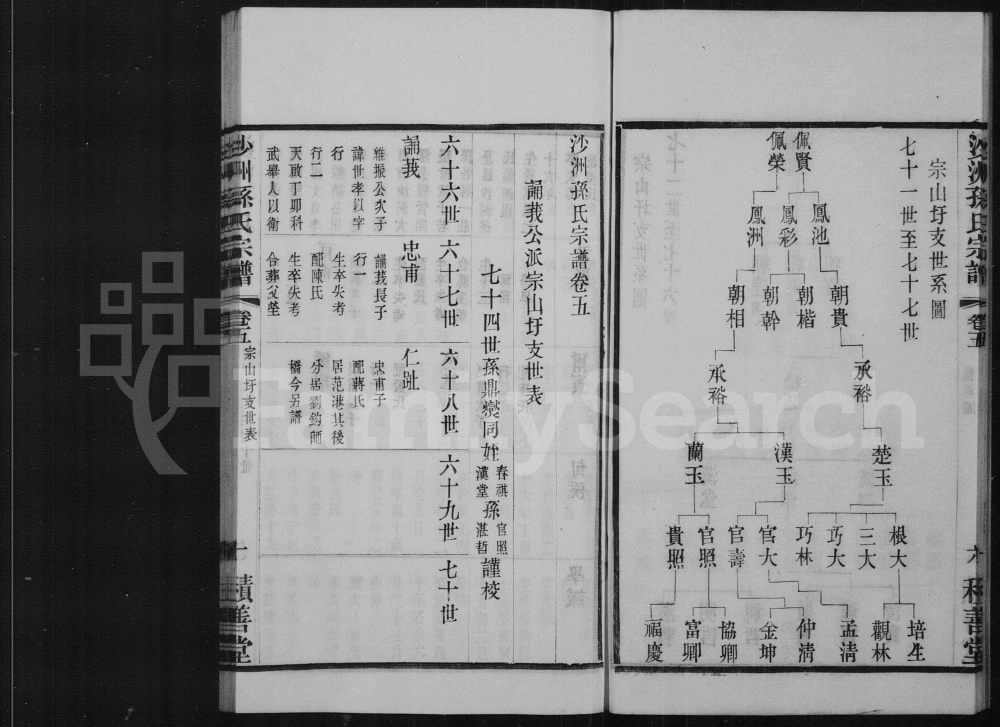 宗山圩支世系圖
七十一世至七十七世
佩賢
佩榮
鳳池
鳳彩
鳳洲
朝貴
朝楷
朝幹
朝相
承裕
承裕
楚玉
漢玉
蘭玉
根大
三大
巧大
巧林
官大
官壽
官照
貴照
培生
觀林
孟清
仲清
金坤
協卿
富卿
福慶
沙洲孫氏宗譜
卷五
積善堂
沙洲孫氏宗譜卷五
誦莪公派宗山圩支世表
七十四世孫鼎爕同姪春祺漢堂孫官照湛哲謹校
六十六世 六十七世 六十八世 六十九世 七十世
誦莪 忠甫 仁趾
雅振公次子 誦莪長子 忠甫子
諱世孝以字 行一 配蔣氏
行 生卒失考 居范港其後
行二 配陳氏 分居劉鈞師
天啟丁卯科 生卒失考 橋今另譜
武舉人以衛 合葬父塋
沙洲孫氏宗譜
卷五 宗山圩支世表
十 積善堂
FamilySearch